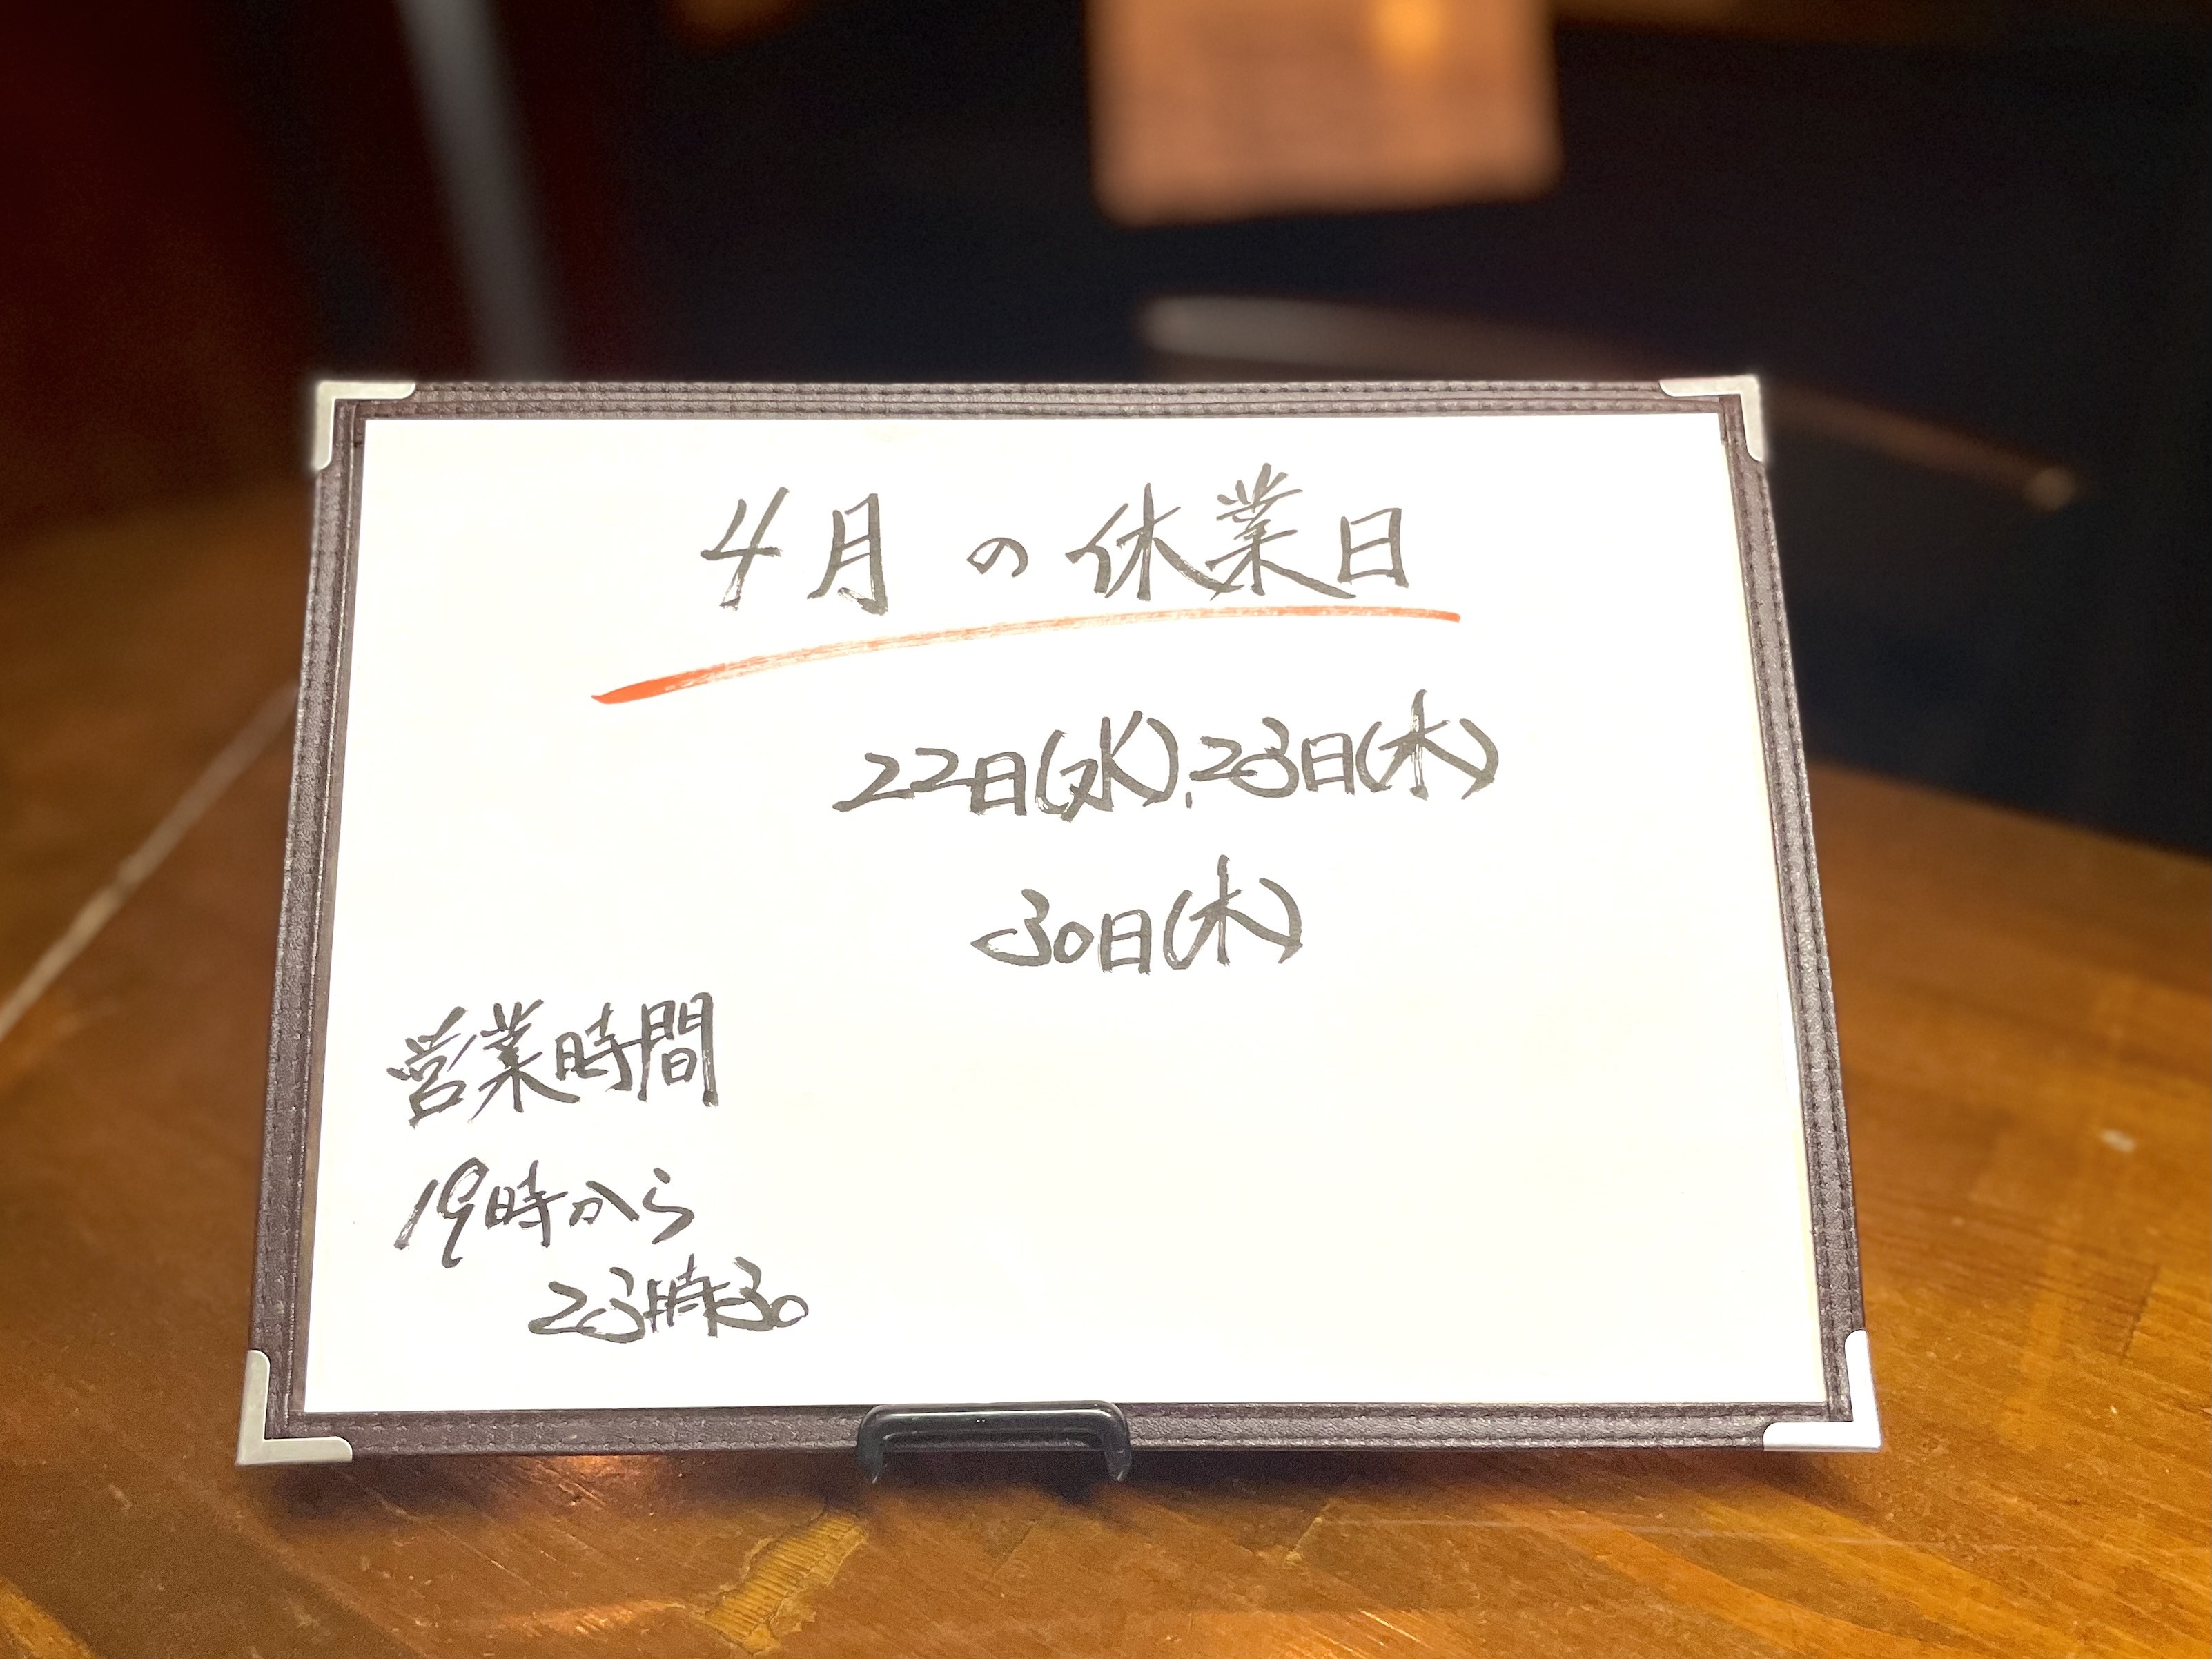 4月の休業日
22日(水),23日(木)
30日(木)
営業時間
19時から
23時30